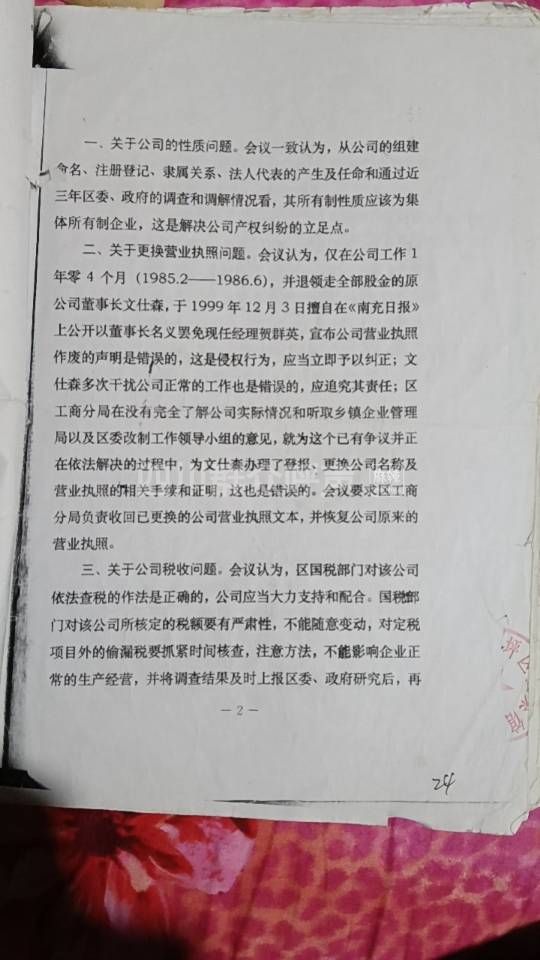 一、关于公司的性质问题。会议一致认为，从公司的组建
命名、注册登记、隶属关系、法人代表的产生及任命和通过近
三年区委、政府的调查和调解情况看，其所有制性质应该为集
体所有制企业，这是解决公司产权纠纷的立足点。
二、关于更换营业执照问题。会议认为，仅在公司工作1
年零4个月（1985.2——1986.6），并退领走全部股金的原
公司董事长文仕森，于1999年12月3日擅自在《南充日报》
上公开以董事长名义罢免现任经理贺群英，宣布公司营业执照
作废的声明是错误的，这是侵权行为，应当立即予以纠正；文
仕森多次干扰公司正常的工作也是错误的，应追究其责任；区
工商分局在没有完全了解公司实际情况和听取乡镇企业管理
局以及区委改制工作领导小组的意见，就为这个已有争议并正
在依法解决的过程中，为文仕森办理了登报、更换公司名称及
营业执照的相关手续和证明，这也是错误的。会议要求区工商
分局负责收回已更换的公司营业执照文本，并恢复公司原来的
营业执照。
三、关于公司税收问题。会议认为，区国税部门对该公司
依法查税的作法是正确的，公司应当大力支持和配合。国税部
门对该公司所核定的税额要有严肃性，不能随意变动，对定税
项目外的偷漏税要抓紧时间核查，注意方法，不能影响企业正
常的生产经营，并将调查结果及时上报区委、政府研究后，再
— 2 —
24